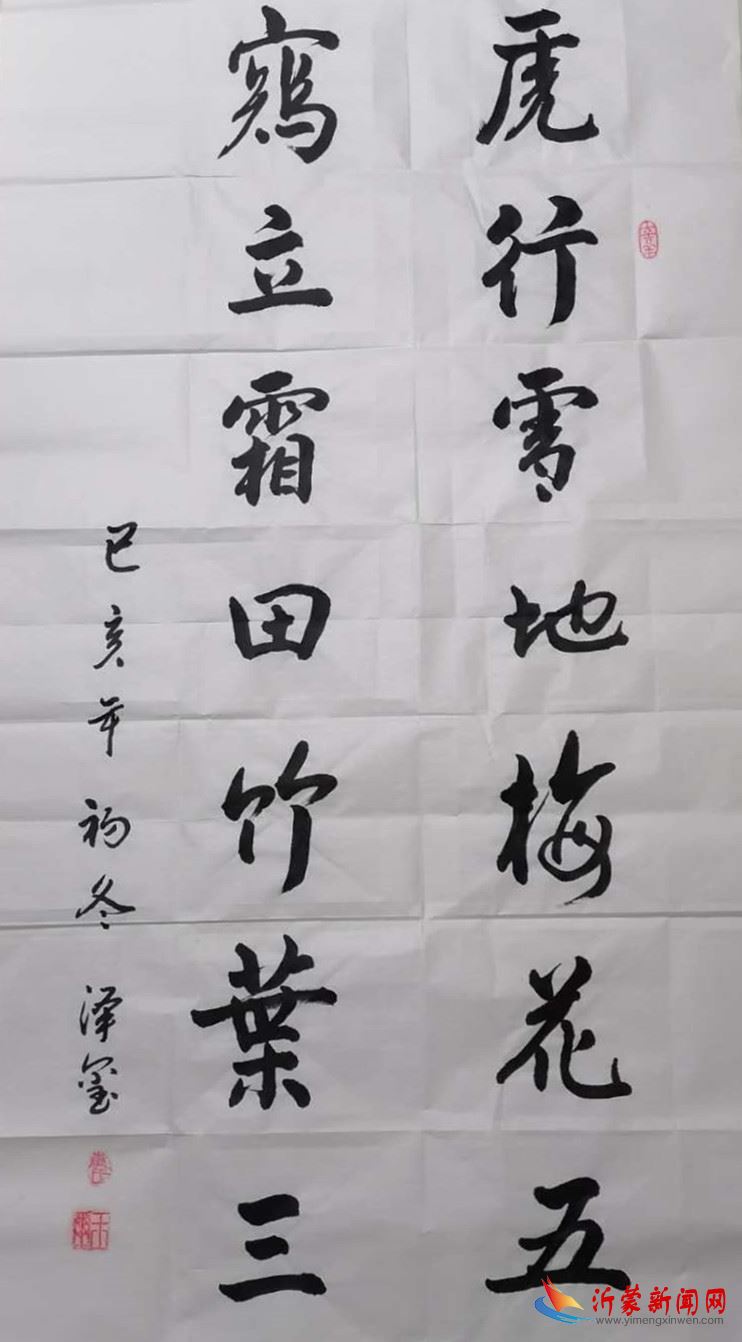 虎行雪地梅花五
鶴立霜田竹葉三
己亥年初冬 泽
沂蒙新闻网
www.yimengxinwen.com